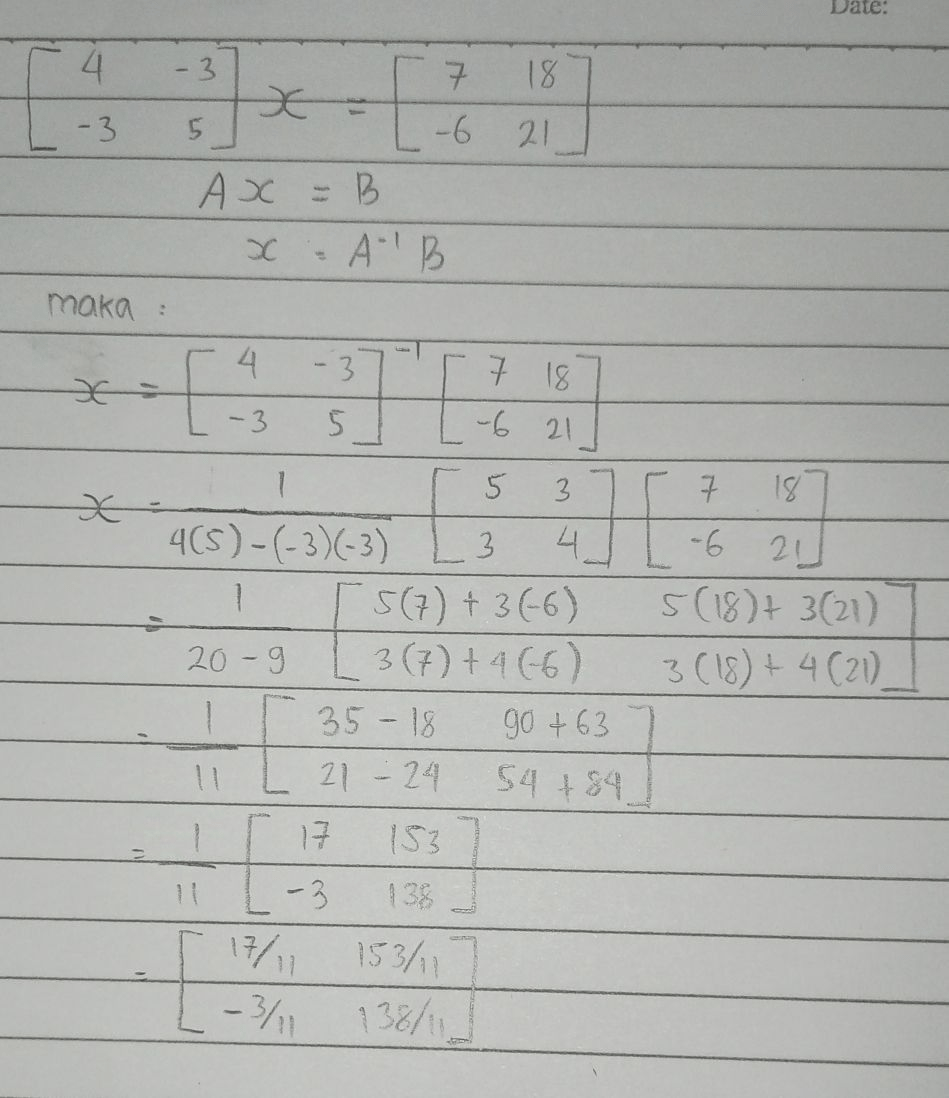 Date:
[ 4 -3 ; -3 5 ] x = [ 7 18 ; -6 21 ]
Ax = B
x = A⁻¹ B
maka :
x = [ 4 -3 ; -3 5 ]⁻¹ [ 7 18 ; -6 21 ]
x = 1 / 4(5) - (-3)(-3) [ 5 3 ; 3 4 ] [ 7 18 ; -6 21 ]
= 1 / 20 - 9 [ 5(7) + 3(-6) 5(18) + 3(21) ; 3(7) + 4(-6) 3(18) + 4(21) ]
= 1 / 11 [ 35 - 18 90 + 63 ; 21 - 24 54 + 84 ]
= 1 / 11 [ 17 153 ; -3 138 ]
= [ 17/11 153/11 ; -3/11 138/11 ]